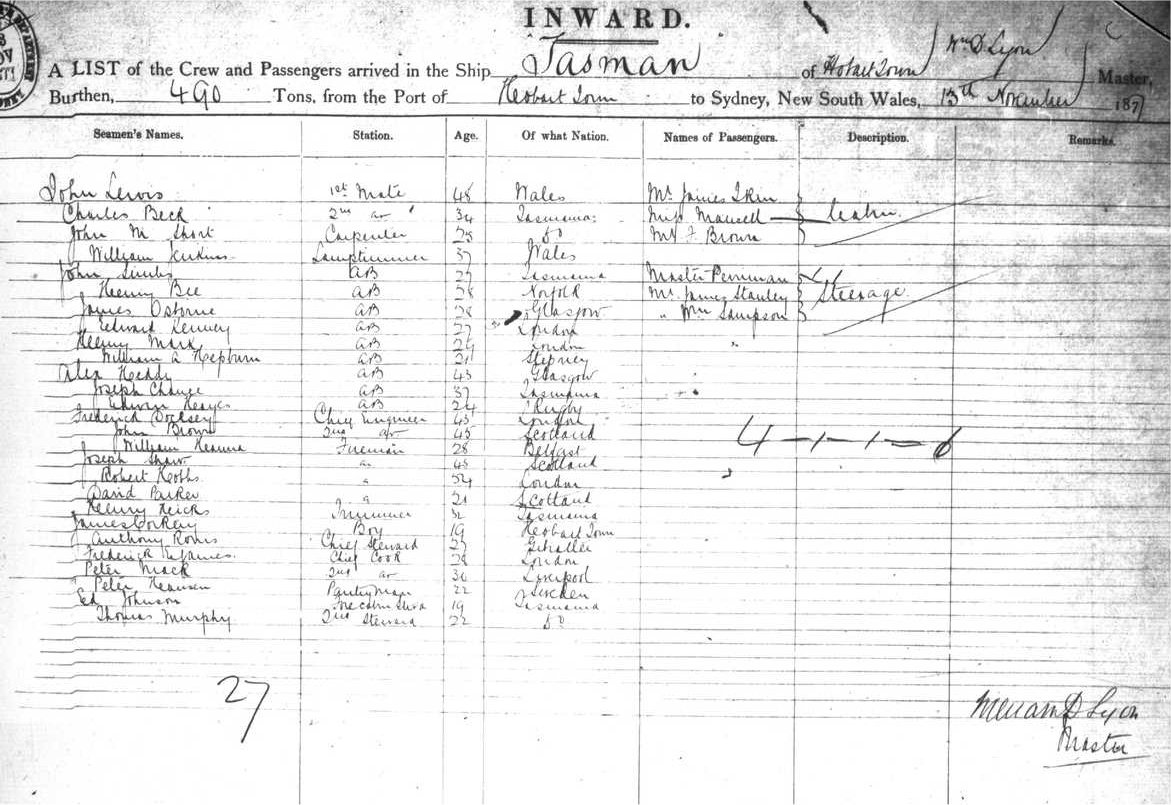 INWARD.
A LIST of the Crew and Passengers arrived in the Ship Tasman of Hobart Town Wm D Lyon Master,
Burthen, 490 Tons, from the Port of Hobart Town to Sydney, New South Wales, 13th November 187
Seamen's Names. Station. Age. Of what Nation. Names of Passengers. Description. Remarks.
John Lewis 1st Mate 48 Wales Mr James
Charles Beck 2nd do 34 Tasmania Miss Cabin
John M Short Carpenter 25 do F Brown
William Jenkins Lamptrimmer 37 Wales
John AB 27 Tasmania Master Perriman
Henry Bee AB 28 Norfolk Mr James Stanley Steerage
James Osborne AB 28 Glasgow " Wm Sampson
Edward AB 27 London
Henry Mark AB 24 London
William A Hepburn AB 21 Stepney
Alex Keddy AB 43 Glasgow
Joseph Chance AB 37 Tasmania
Edwin AB 24 Rugby
Frederick Chief Engineer 45 London
John Brown 2nd do 45 Scotland 4-1-1=6
William Fireman 28 Belfast
Joseph Shaw 48 Scotland
Robert London
David Parker 21 Scotland
Henry Hicks Trimmer 32 Tasmania
James Boy 19 Hobart Town
Anthony Chief Steward 27
Frederick Chief Cook 28 London
Peter Mack 2nd do 30 Liverpool
Peter Pantryman 22 Sweden
Ed Johnson 19 Tasmania
Thomas Murphy 2nd Steward 22 do
27
William D Lyon
Master